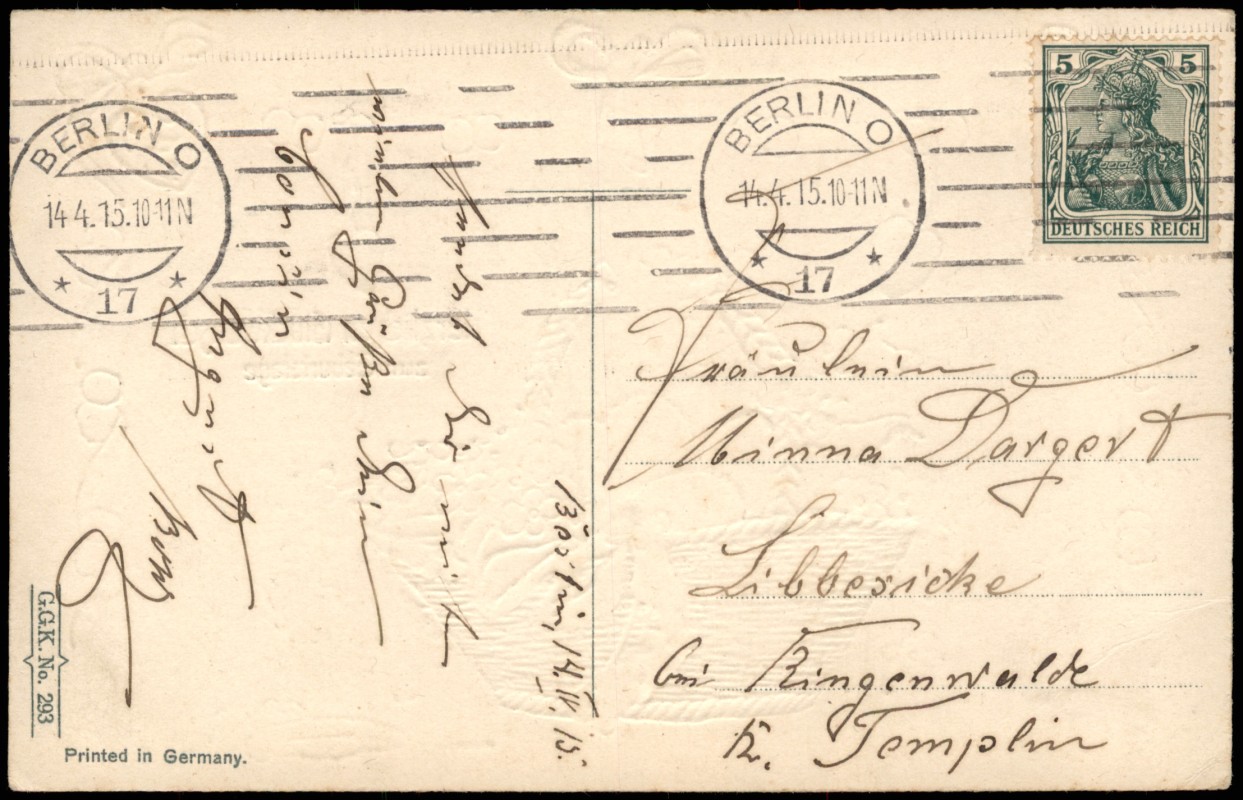 BERLIN O
14.4.15.10-11 N
* 17 *
BERLIN O
14.4.15.10-11 N
* 17 *
5 5
DEUTSCHES REICH
Berlin, 14.IV.15.
Dir mit
Grüßen
Fräulein
Minna Dargert
Libbesicke
bei Ringenwalde
K. Templin
G.G.K. No. 293
Printed in Germany.